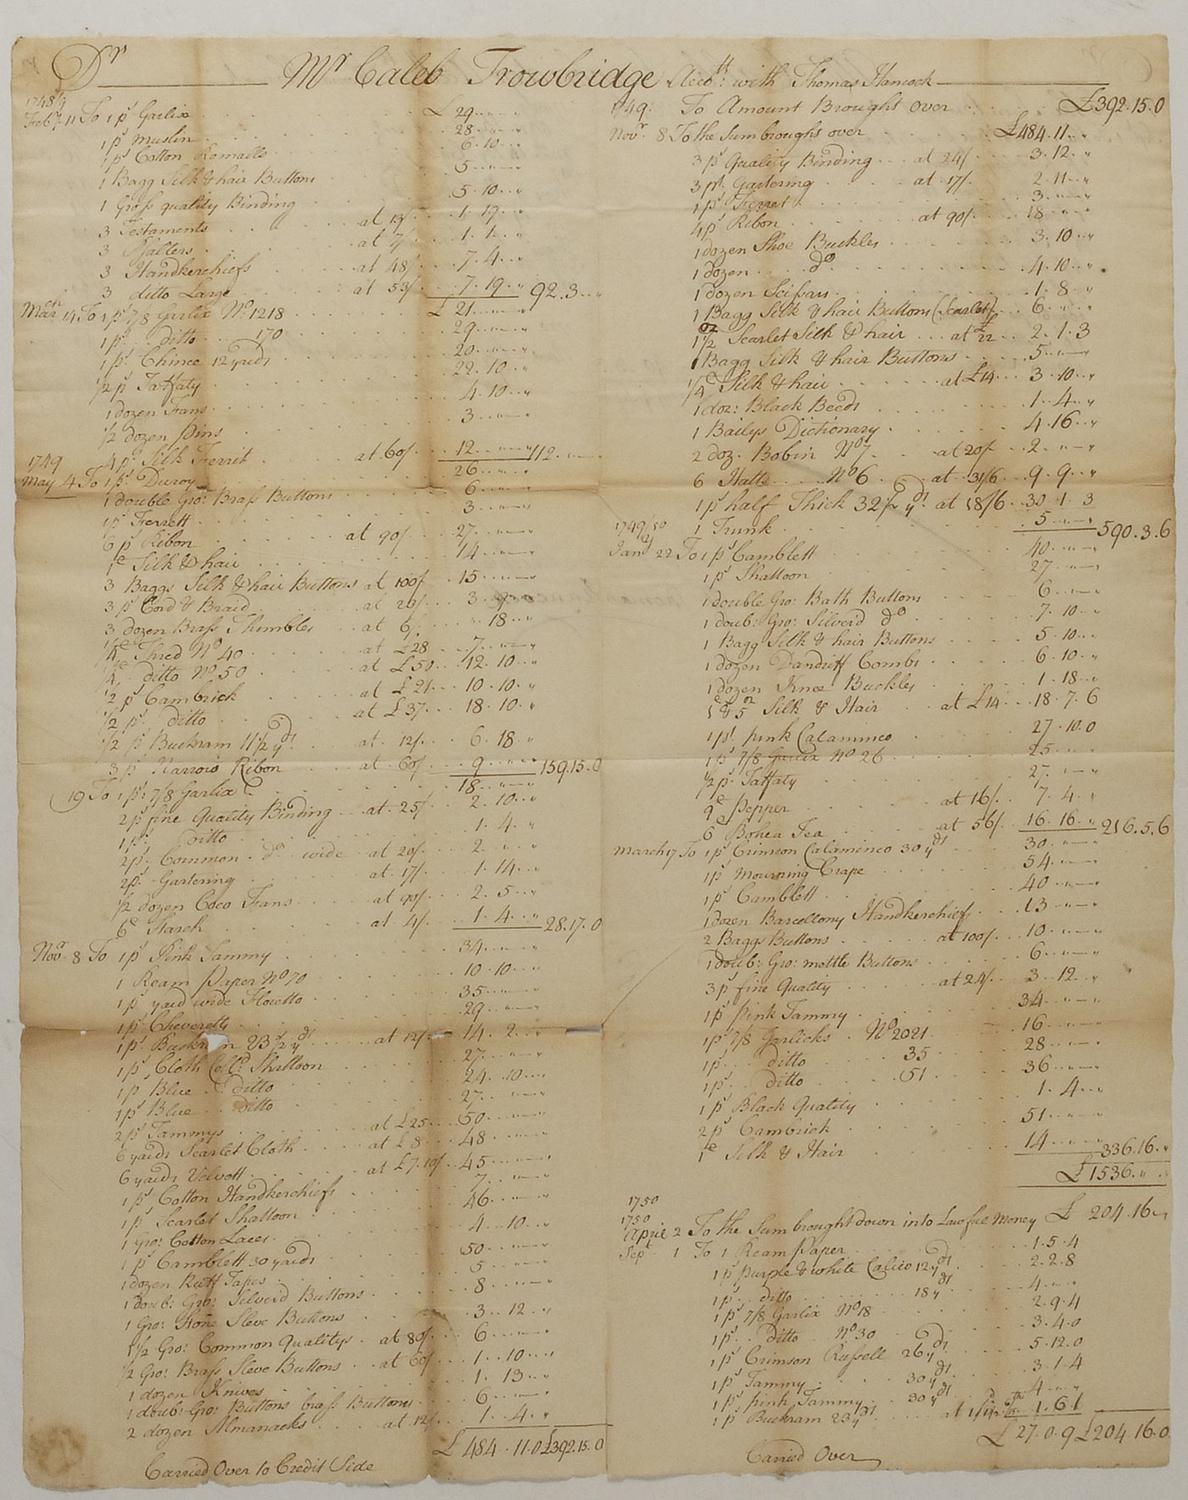 Dr Mr Caleb Trowbridge Accott: with Thomas Hancock
1748/9
Feby. 11 To 1 ps Garlix £ 29
1 ps Muslin 28
1 ps Cotton Romalls 6.10
1 Bagg Silk & hair Buttons 5
1 Gross quality Binding 5.10
3 Testaments at 13/ 1.19
3 Psalters at 7/ 1.1
3 Handkerchiefs at 48/ 7.4
3 ditto Large at 53/ 7.19 92.3
Mar ch 14 To 1 ps 7/8 Garlix No 1218 £ 21
1 ps ditto 170 29
1 ps Chince 12 yards 20
1/2 ps Taffaty 22.10
1 dozen Fans 4.10
1/2 dozen Pins 3
4 ps Silk Ferrit at 60/ 12 112
1749
May 4 To 1 ps Duroy 26
1 double Gro: Brass Buttons 6
1 ps Ferrett 3
6 ps Ribon at 90/ 27
1 Silk & hair 14
3 Baggs Silk & hair Buttons at 100/ 15
3 ps Cord & Braid at 20/ 3
3 dozen Brass Thimbles at 6/ 18
1/4 Thred No 40 at £28 7
1/4 ditto No 50 at £50 12.10
1/2 ps Cambrick at £21 10.10
1/2 ps ditto at £37 18.10
1/2 ps Buckram 11 1/2 yds at 12/ 6.18
3 ps Narrow Ribon at 60/ 9 159.15.0
19 To 1 ps 7/8 Garlix 18
2 ps fine Quality Binding at 25/ 2.10
1 ps ditto 1.4
2 ps Common do wide at 20/ 2
2 ps Gartering at 17/ 1.14
1/2 dozen Coco Fans at 90/ 2.5
6 Starch at 4/ 1.4 28.17.0
Novr 8 To 1 ps Pink Tammy 34
1 Ream Paper No 70 10.10
1 ps yard wide Floretto 35
1 ps Cheveretts 29
1 ps Buckram 23 1/2 yds at 12/ 14.2
1 ps Cloth Colld Shalloon 27
1 ps Blue ditto 24.10
1 ps Blue ditto 27
2 ps Tammys at £25 50
6 yards Scarlet Cloth at £8 48
6 yards Velvett at £7.10/ 45
1 ps Cotton Handkerchiefs 7
1 ps Scarlet Shalloon 46
1 Gro: Cotton Laces 4.10
1 ps Camblett 30 yards 50
1 dozen Ruff Tapes 5
1 doub: Gro: Silverd Buttons 8
1 Gro: Stone Sleve Buttons 3.12
1 1/2 Gro: Common Qualitys at 80/ 6
1/2 Gro: Brass Sleve Buttons at 60/ 1.10
1 dozen Knives 1.13
1 doub: Gro: Buttons brass Buttons 6
2 dozen Almanacks at 12/ 1.4
£ 484.11.0 £392.15.0
Carried Over to Credit Side
1749: To Amount Brought over £392.15.0
Novr 8 To the Sum brought over £484.11
3 ps Quality Binding at 24/ 3.12
3 ps Gartering at 17/ 2.11
1 ps Ferret 3
4 ps Ribon at 90/ 18
1 dozen Shoe Buckles 3.10
1 dozen do 4.10
1 dozen Scissars 1.8
1 Bagg Silk & hair Buttons (Scarlet) 6
1 1/2 oz Scarlet Silk & hair at 22 2.1.3
1 Bagg Silk & hair Buttons 5
1/4 Silk & hair at £14 3.10
1 doz: Black Beeds 1.4
1 Bailys Dictionary 4.16
2 doz. Bobin No 7 at 20/ 2
6 Hatts No 6 at 31/6 9.9
1 ps half Thick 32 1/2 yds at 18/6 30.1.3
1 Trunk 5 590.3.6
1749/50
Jany 22 To 1 ps Camblett 40
1 ps Shalloon 27
1 double Gro: Bath Buttons 6
1 doub: Gro: Silverd do 7.10
1 Bagg Silk & hair Buttons 5.10
1 dozen Dandriff Combs 6.10
1 dozen Knee Buckles 1.18
1 & 5 oz Silk & Hair at £14 18.7.6
1 ps pink Calaminco 27.10.0
1 ps 7/8 Garlix No 26 25
1/2 ps Taffaty 27
9 Pepper at 16/ 7.4
6 Bohea Tea at 56/ 16.16 216.5.6
March 17 To 1 ps Crimson Calaminco 30 yds 30
1 ps Mourning Crape 54
1 ps Camblett 40
1 dozen Barcellony Handkerchiefs 13
2 Baggs Buttons at 100/ 10
1 doub: Gro: mettle Buttons 6
3 ps fine Quality at 24/ 3.12
1 ps pink Tammy 34
1 ps 7/8 Garlicks No 2021 16
1 ps ditto 35 28
1 ps ditto 51 36
1 ps Black Quality 1.4
2 ps Cambrick 51
1 Silk & Hair 14 336.16
£1536
1750
1750
April 2 To the Sum brought down into Lawful Money £ 204.16
Sept 1 To 1 Ream Paper 1.5.4
1 ps Purple & white Calico 12 yds 2.2.8
1 ps ditto 18 yds 4
1 ps 7/8 Garlix No 18 2.9.4
1 ps ditto No 30 3.4.0
1 ps Crimson Russell 26 yds 5.12.0
1 ps Tammy 30 yds 3.1.4
1 ps pink Tammy 30 yds 4
1 ps Buckram 23 yds at 1/ 1.6.1
£ 27.0.9 £204.16.0
Carried Over